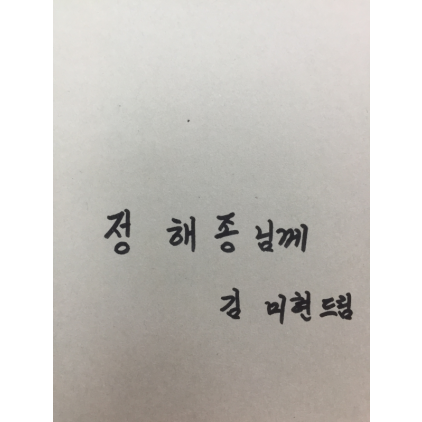 정 해 종 님께
김 미현 드림